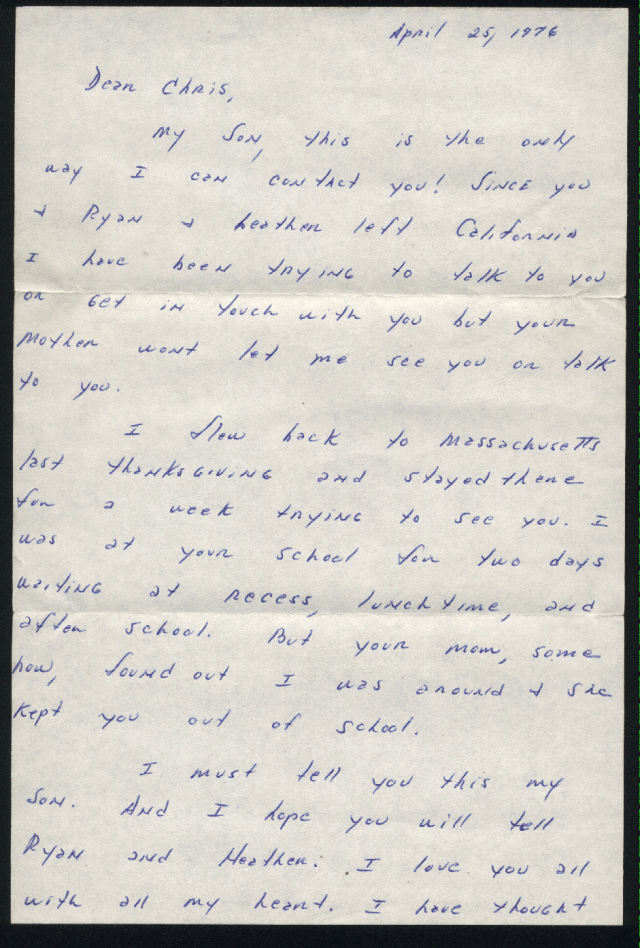 April 25, 1976
Dear Chris,
My Son, this is the only
way I can contact you! Since you
& Ryan & heather left California
I have been trying to talk to you
or get in touch with you but your
Mother wont let me see you or talk
to you.
I flew back to Massachusetts
last thanksgiving and stayed there
for a week trying to see you. I
was at your school for two days
waiting at recess, lunchtime, and
after school. But your mom, some
how, found out I was around & she
kept you out of school.
I must tell you this my
Son. And I hope you will tell
Ryan and Heather: I love you all
with all my heart. I have thought